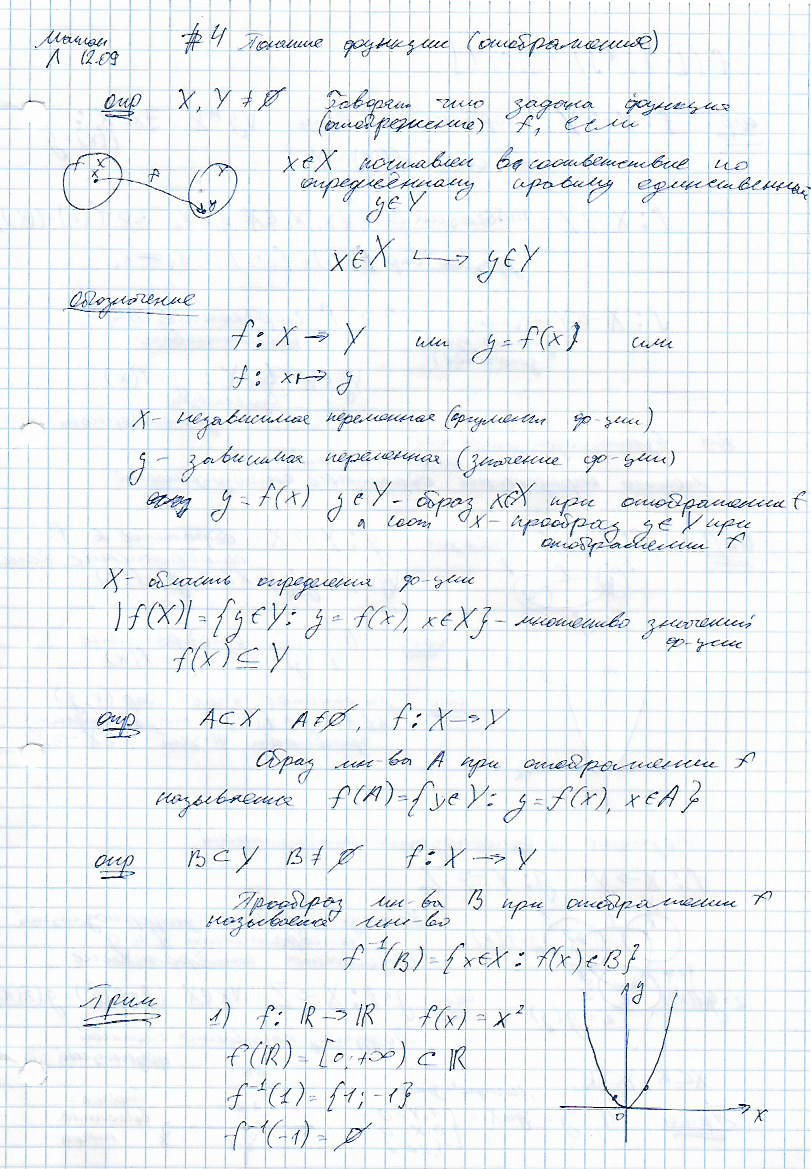 Матан #4 Понятие функции (отображение)
Л 12.09
опр X, Y ≠ ∅ Говорят что задана функция
(отображение) f, если
x∈X поставлен в соответствие по
определённому правилу единственный
y∈Y
X x f Y y
x∈X ⟼ y∈Y
Обозначение
f: X → Y или y = f(x) или
f: x ↦ y
x - независимая переменная (аргумент ф-ции)
y - зависимая переменная (значение ф-ции)
y = f(x) y∈Y - образ x∈X при отображении f
а соот x - прообраз y∈Y при
отображении f
X - область определения ф-ции
|f(X)| = {y∈Y: y = f(x), x∈X} - множество значений
ф-ции
f(x) ⊆ Y
опр A⊂X A≠∅, f: X → Y
Образ мн-ва A при отображении f
называется f(A) = {y∈Y: y = f(x), x∈A}
опр B⊂Y B≠∅ f: X → Y
Прообраз мн-ва B при отображении f
называется мн-во
f⁻¹(B) = {x∈X: f(x)∈B}
Прим
1) f: ℝ → ℝ f(x) = x²
f(ℝ) = [0; +∞) ⊂ ℝ
f⁻¹(1) = {1; -1}
f⁻¹(-1) = ∅
y
0 x